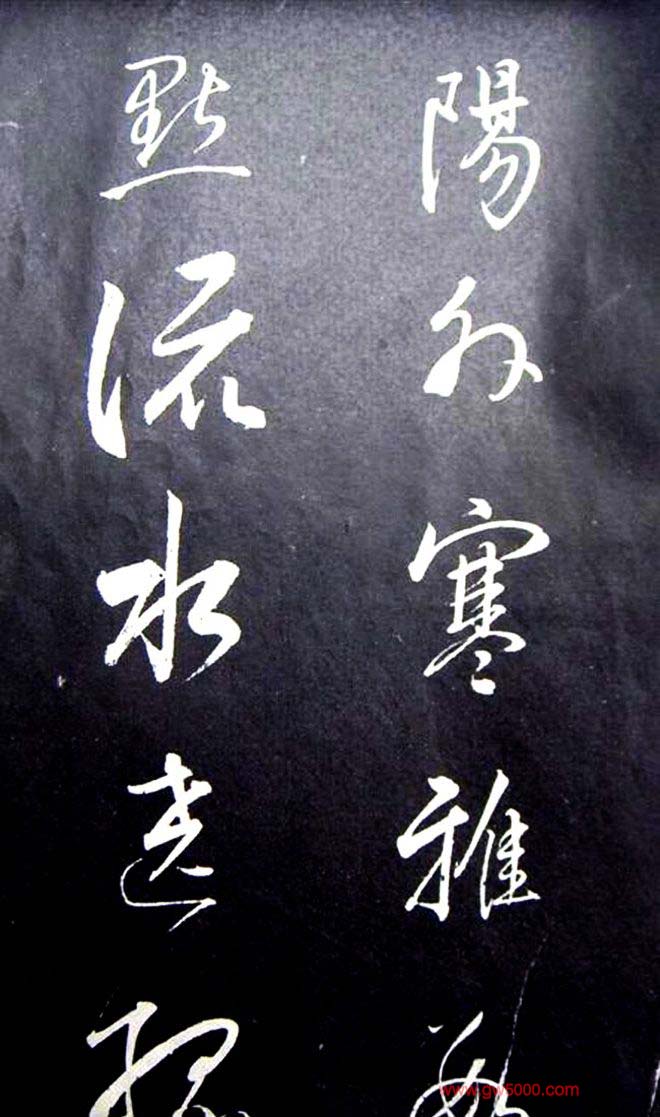 陽外寒雅
點流水遶孤
www.gw5000.com